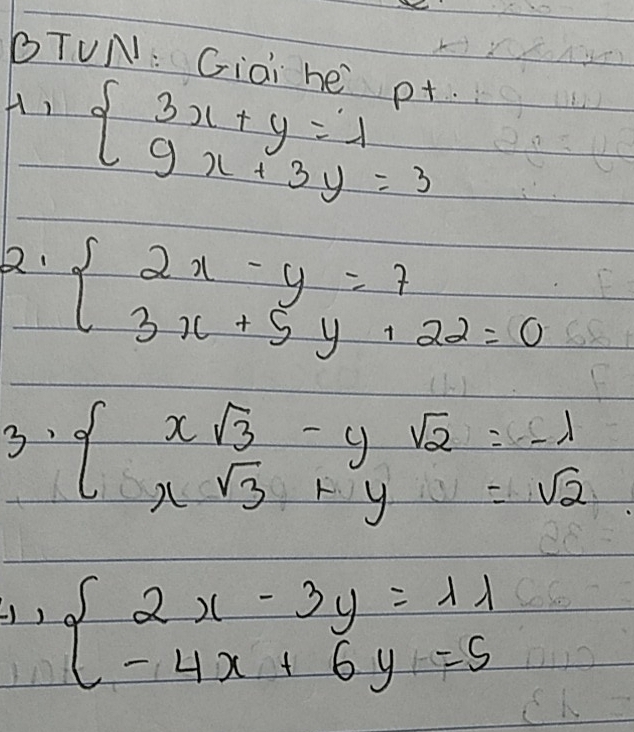 BTVN: Giải hệ pt.
1, { 3x + y = 1
9x + 3y = 3
2. { 2x - y = 7
3x + 5y + 22 = 0
3. { x√3 - y√2 = -1
x√3 + y = √2.
4, { 2x - 3y = 11
-4x + 6y = 5